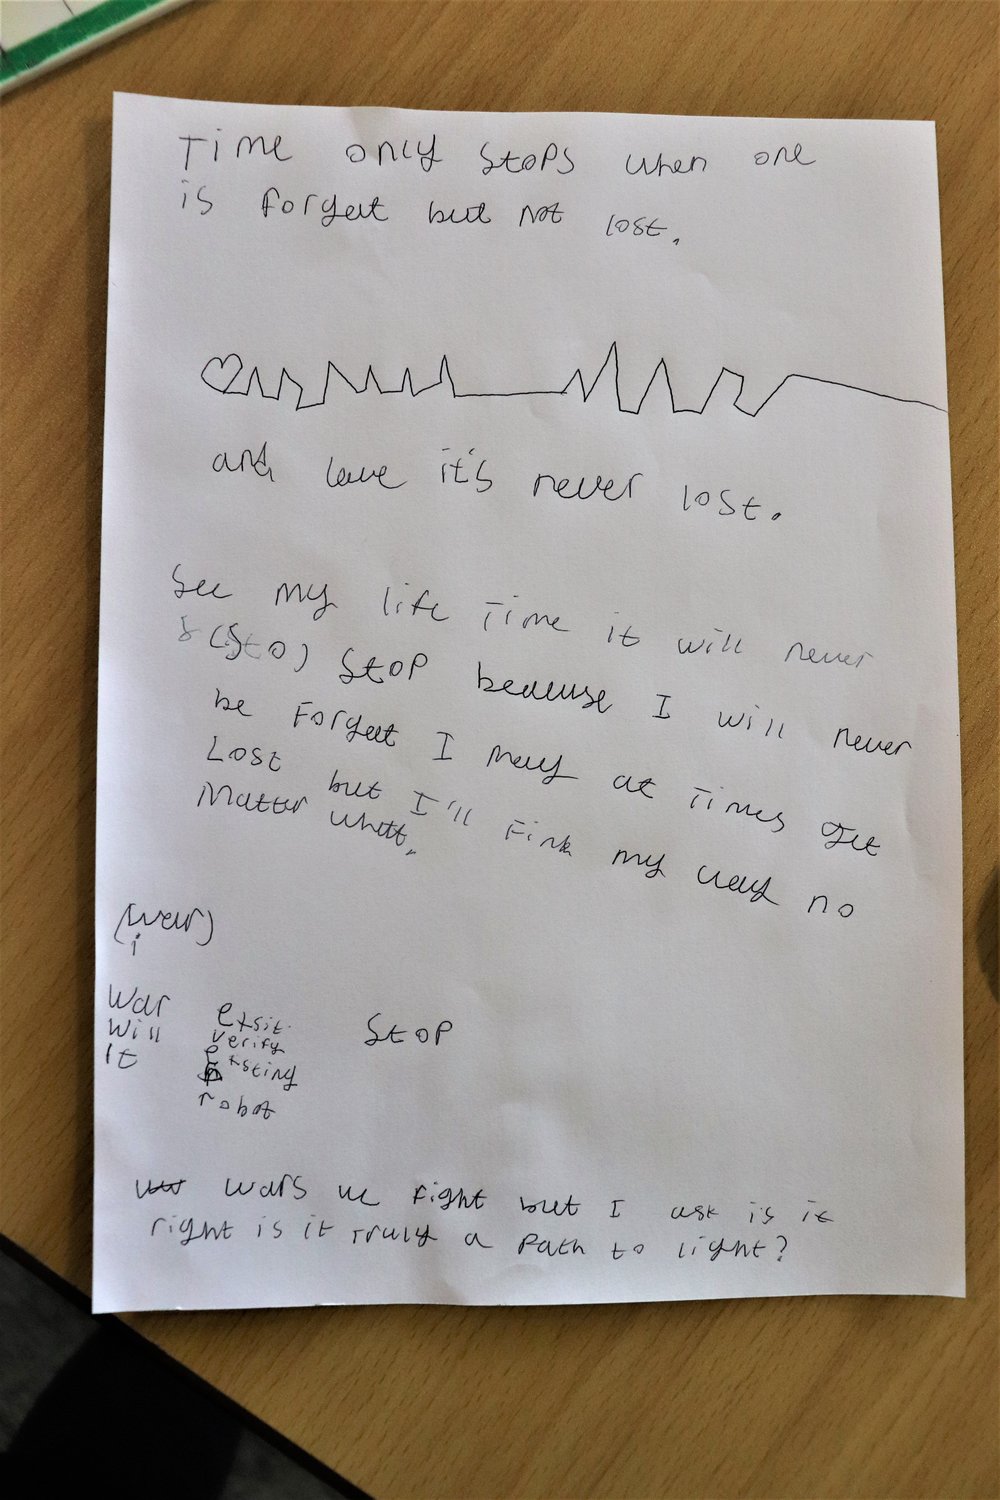 Time only stops when one
is forget but not lost.
and love it's never lost.
See my life time it will never
(sto) stop because I will never
be forget I may at times get
Lost but I'll fink my way no
Matter whatt.
(war)
i
War exsit. Stop
will verify
It exsting
robot
wars we fight but I ask is it
right is it truly a path to light?